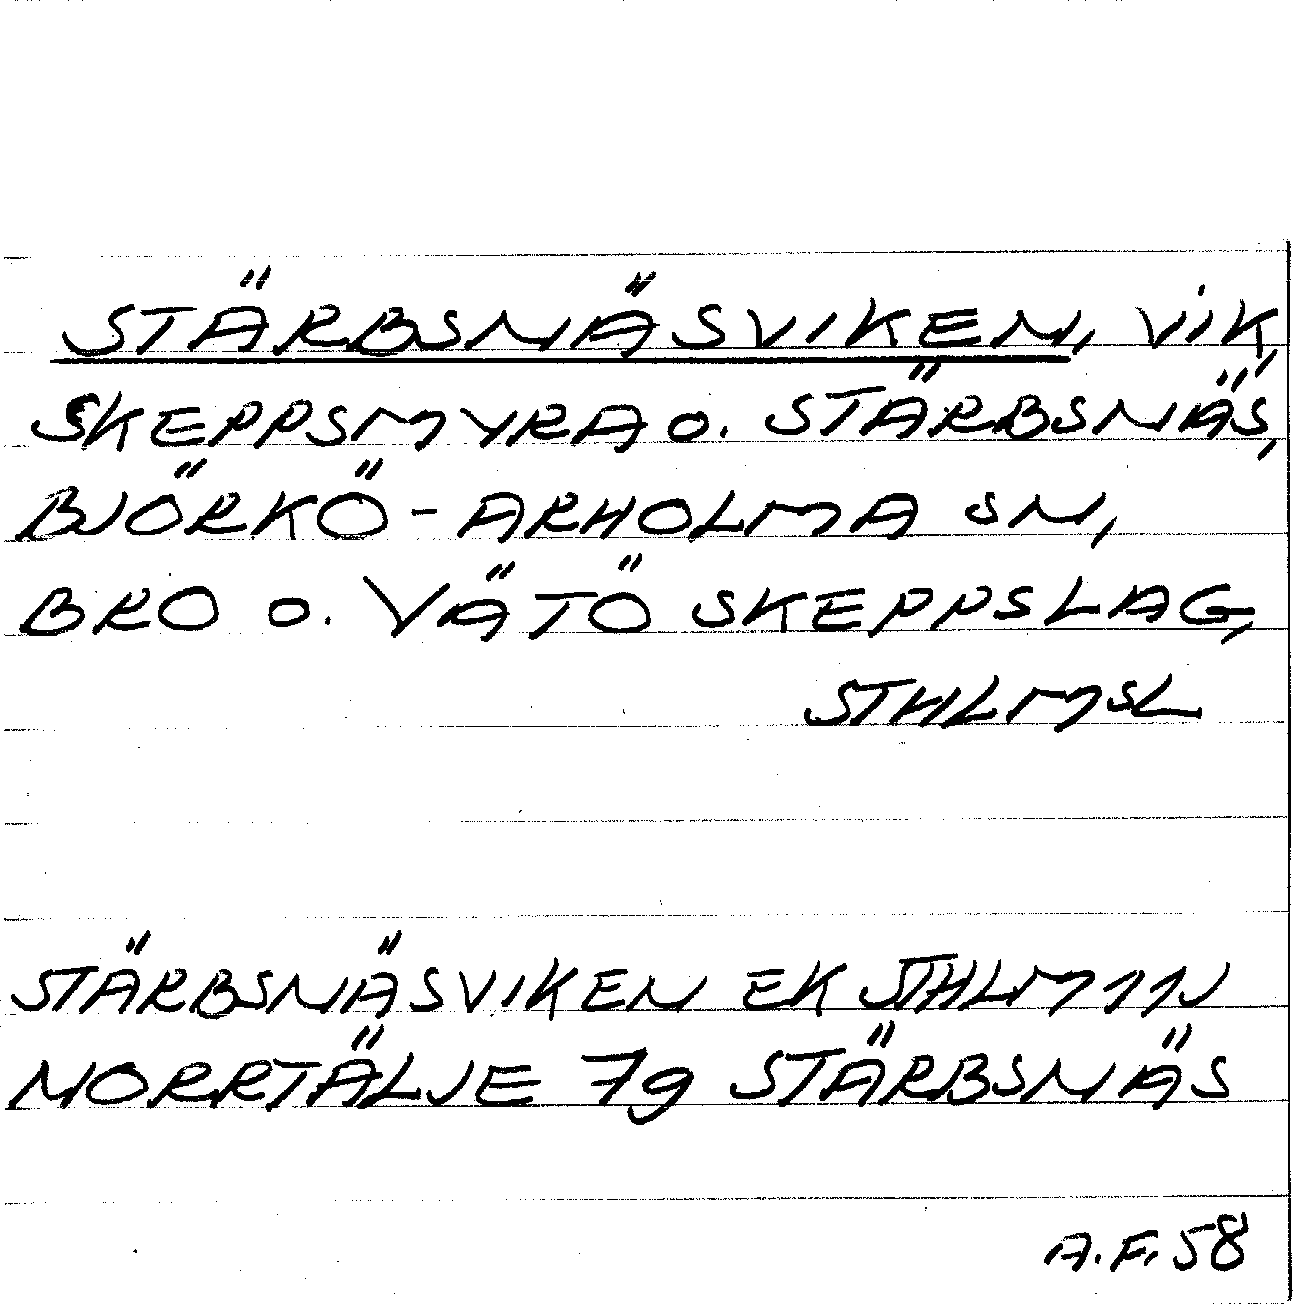 STÄRBSNÄSVIKEN, VIK,
SKEPPSMYRA O. STÄRBSNÄS,
BJÖRKÖ-ARHOLMA SN,
BRO O. VÄTÖ SKEPPSLAG,
STHLMSL
STÄRBSNÄSVIKEN EK STHLM 11NJ
NORRTÄLJE 7g STÄRBSNÄS
A.F. 58